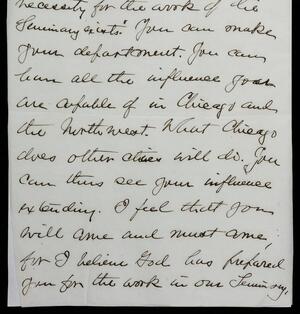 necessity for the work of the
Seminary exists. You can make
your department. You can
have all the influence you
are capable of in Chicago and
the Northwest. What Chicago
does other cities will do. You
can thus see your influence
extending. I feel that you
will come and must come,
for I believe God has prepared
you for the work in our Seminary,